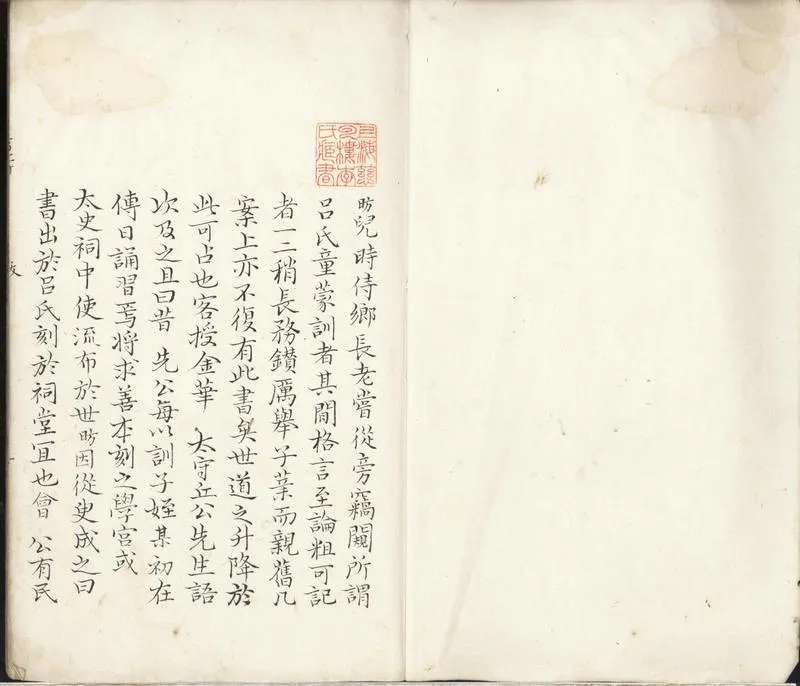 昉兒時侍鄉長老嘗從旁竊闞所謂
呂氏童蒙訓者其間格言至論粗可記
者一二稍長務鑽厲舉子業而親舊几
案上亦不復有此書矣世道之升降於
此可占也客授金華 太守丘公先生語
次及之且曰昔 先公每以訓子姪某初在
傳日誦習焉将求善本刻之學宮或
太史祠中使流布於世昉因從臾成之曰
書出於呂氏刻於祠堂宜也會 公有民